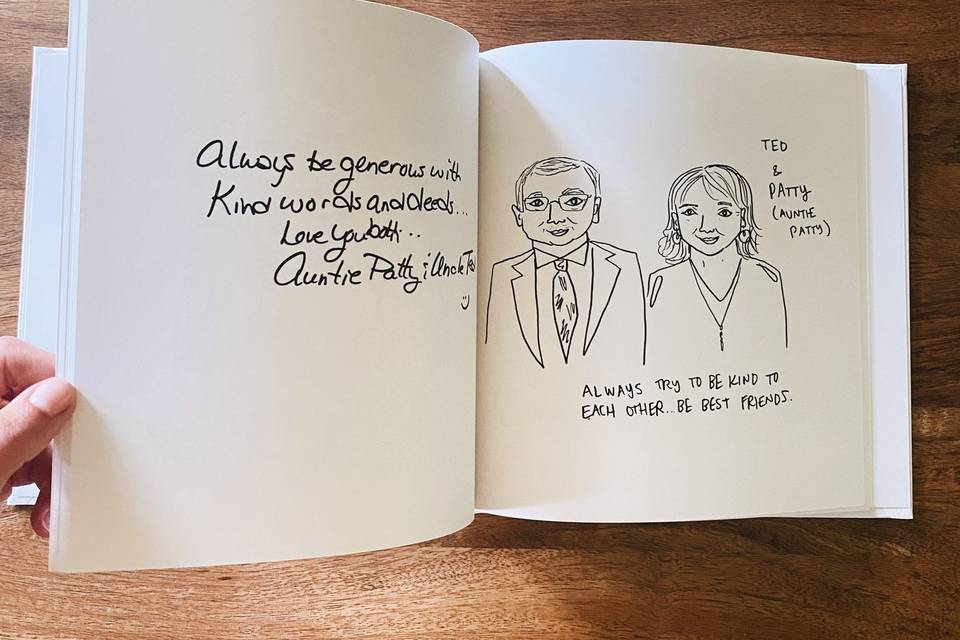 Always be generous with
Kind words and deeds...
Love you both...
Auntie Patty & Uncle Ted
TED
&
PATTY
(AUNTIE
PATTY)
ALWAYS TRY TO BE KIND TO
EACH OTHER...BE BEST FRIENDS.